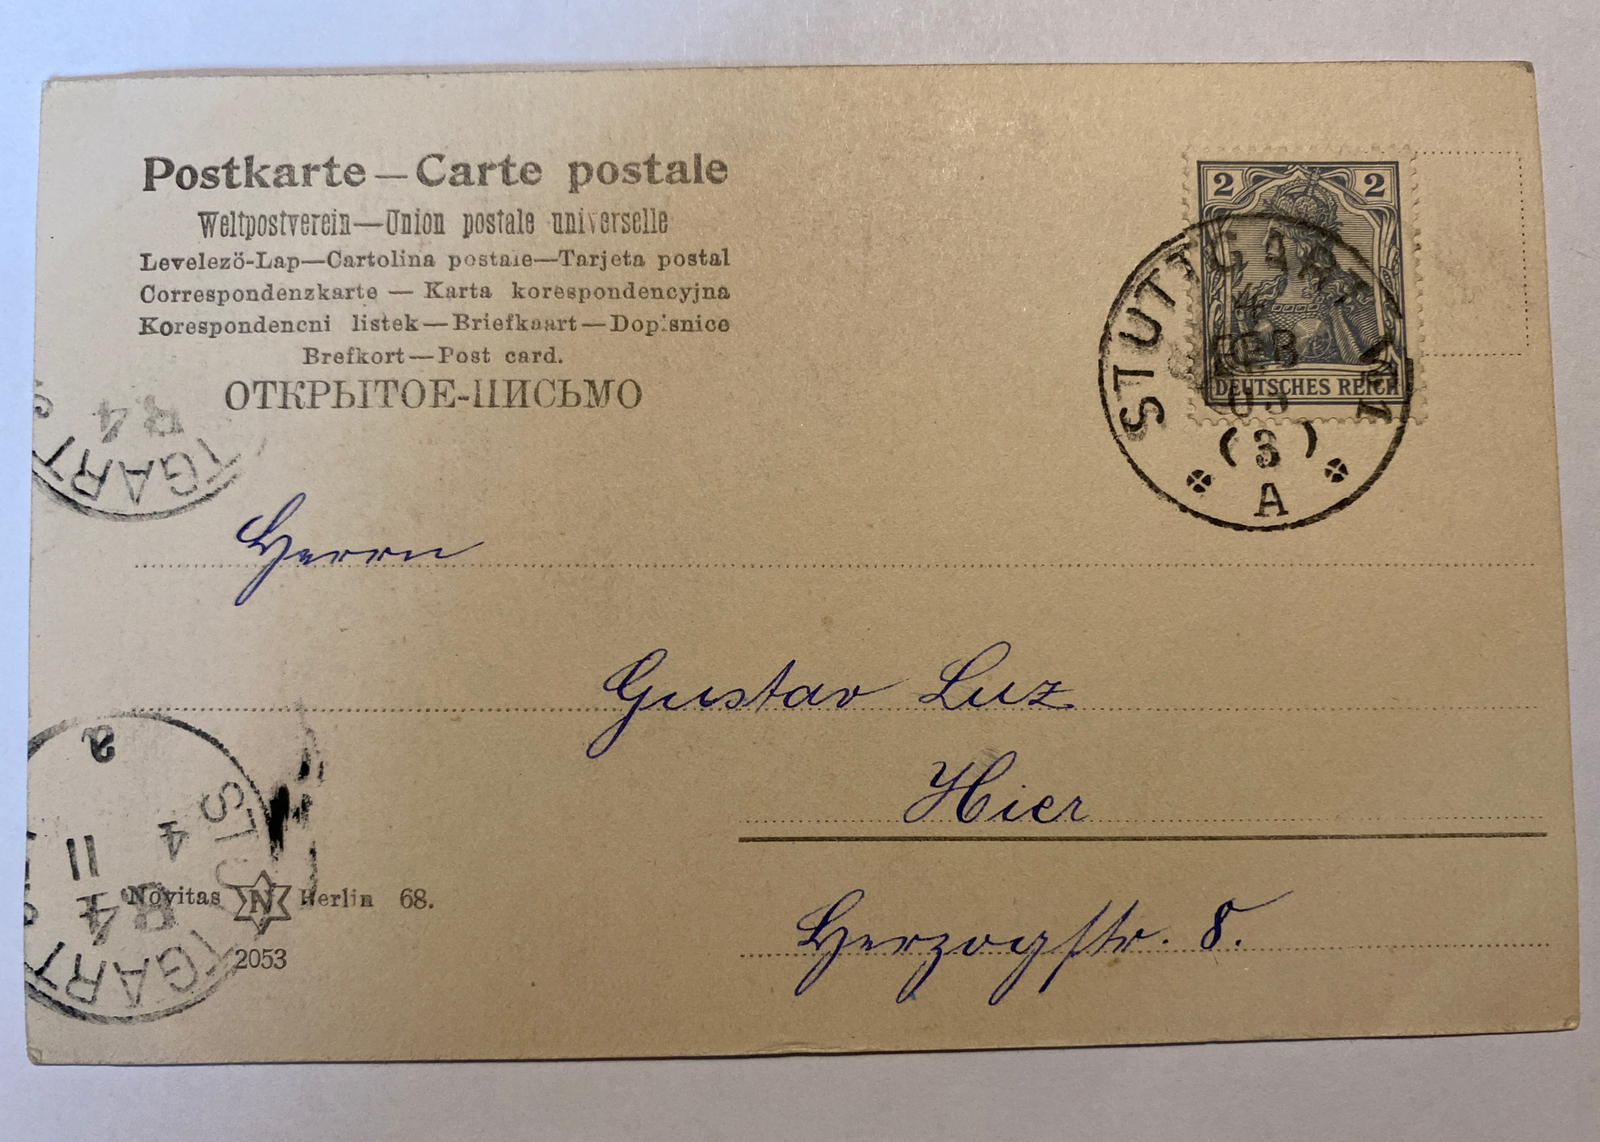 Postkarte — Carte postale
Weltpostverein — Union postale universelle
Levelező-Lap — Cartolina postale — Tarjeta postal
Correspondenzkarte — Karta korespondencyjna
Korespondencni listek — Briefkaart — Dopisnice
Brefkort — Post card.
ОТКРЫТОЕ-ПИСЬМО
2 2
DEUTSCHES REICH
STUTTGART
4
FEB
(3)
A
TGART
Herrn
Gustav Luz
Hier
Herzogstr. 8.
a
STU
4
11
TGART
Novitas N Berlin 68.
2053